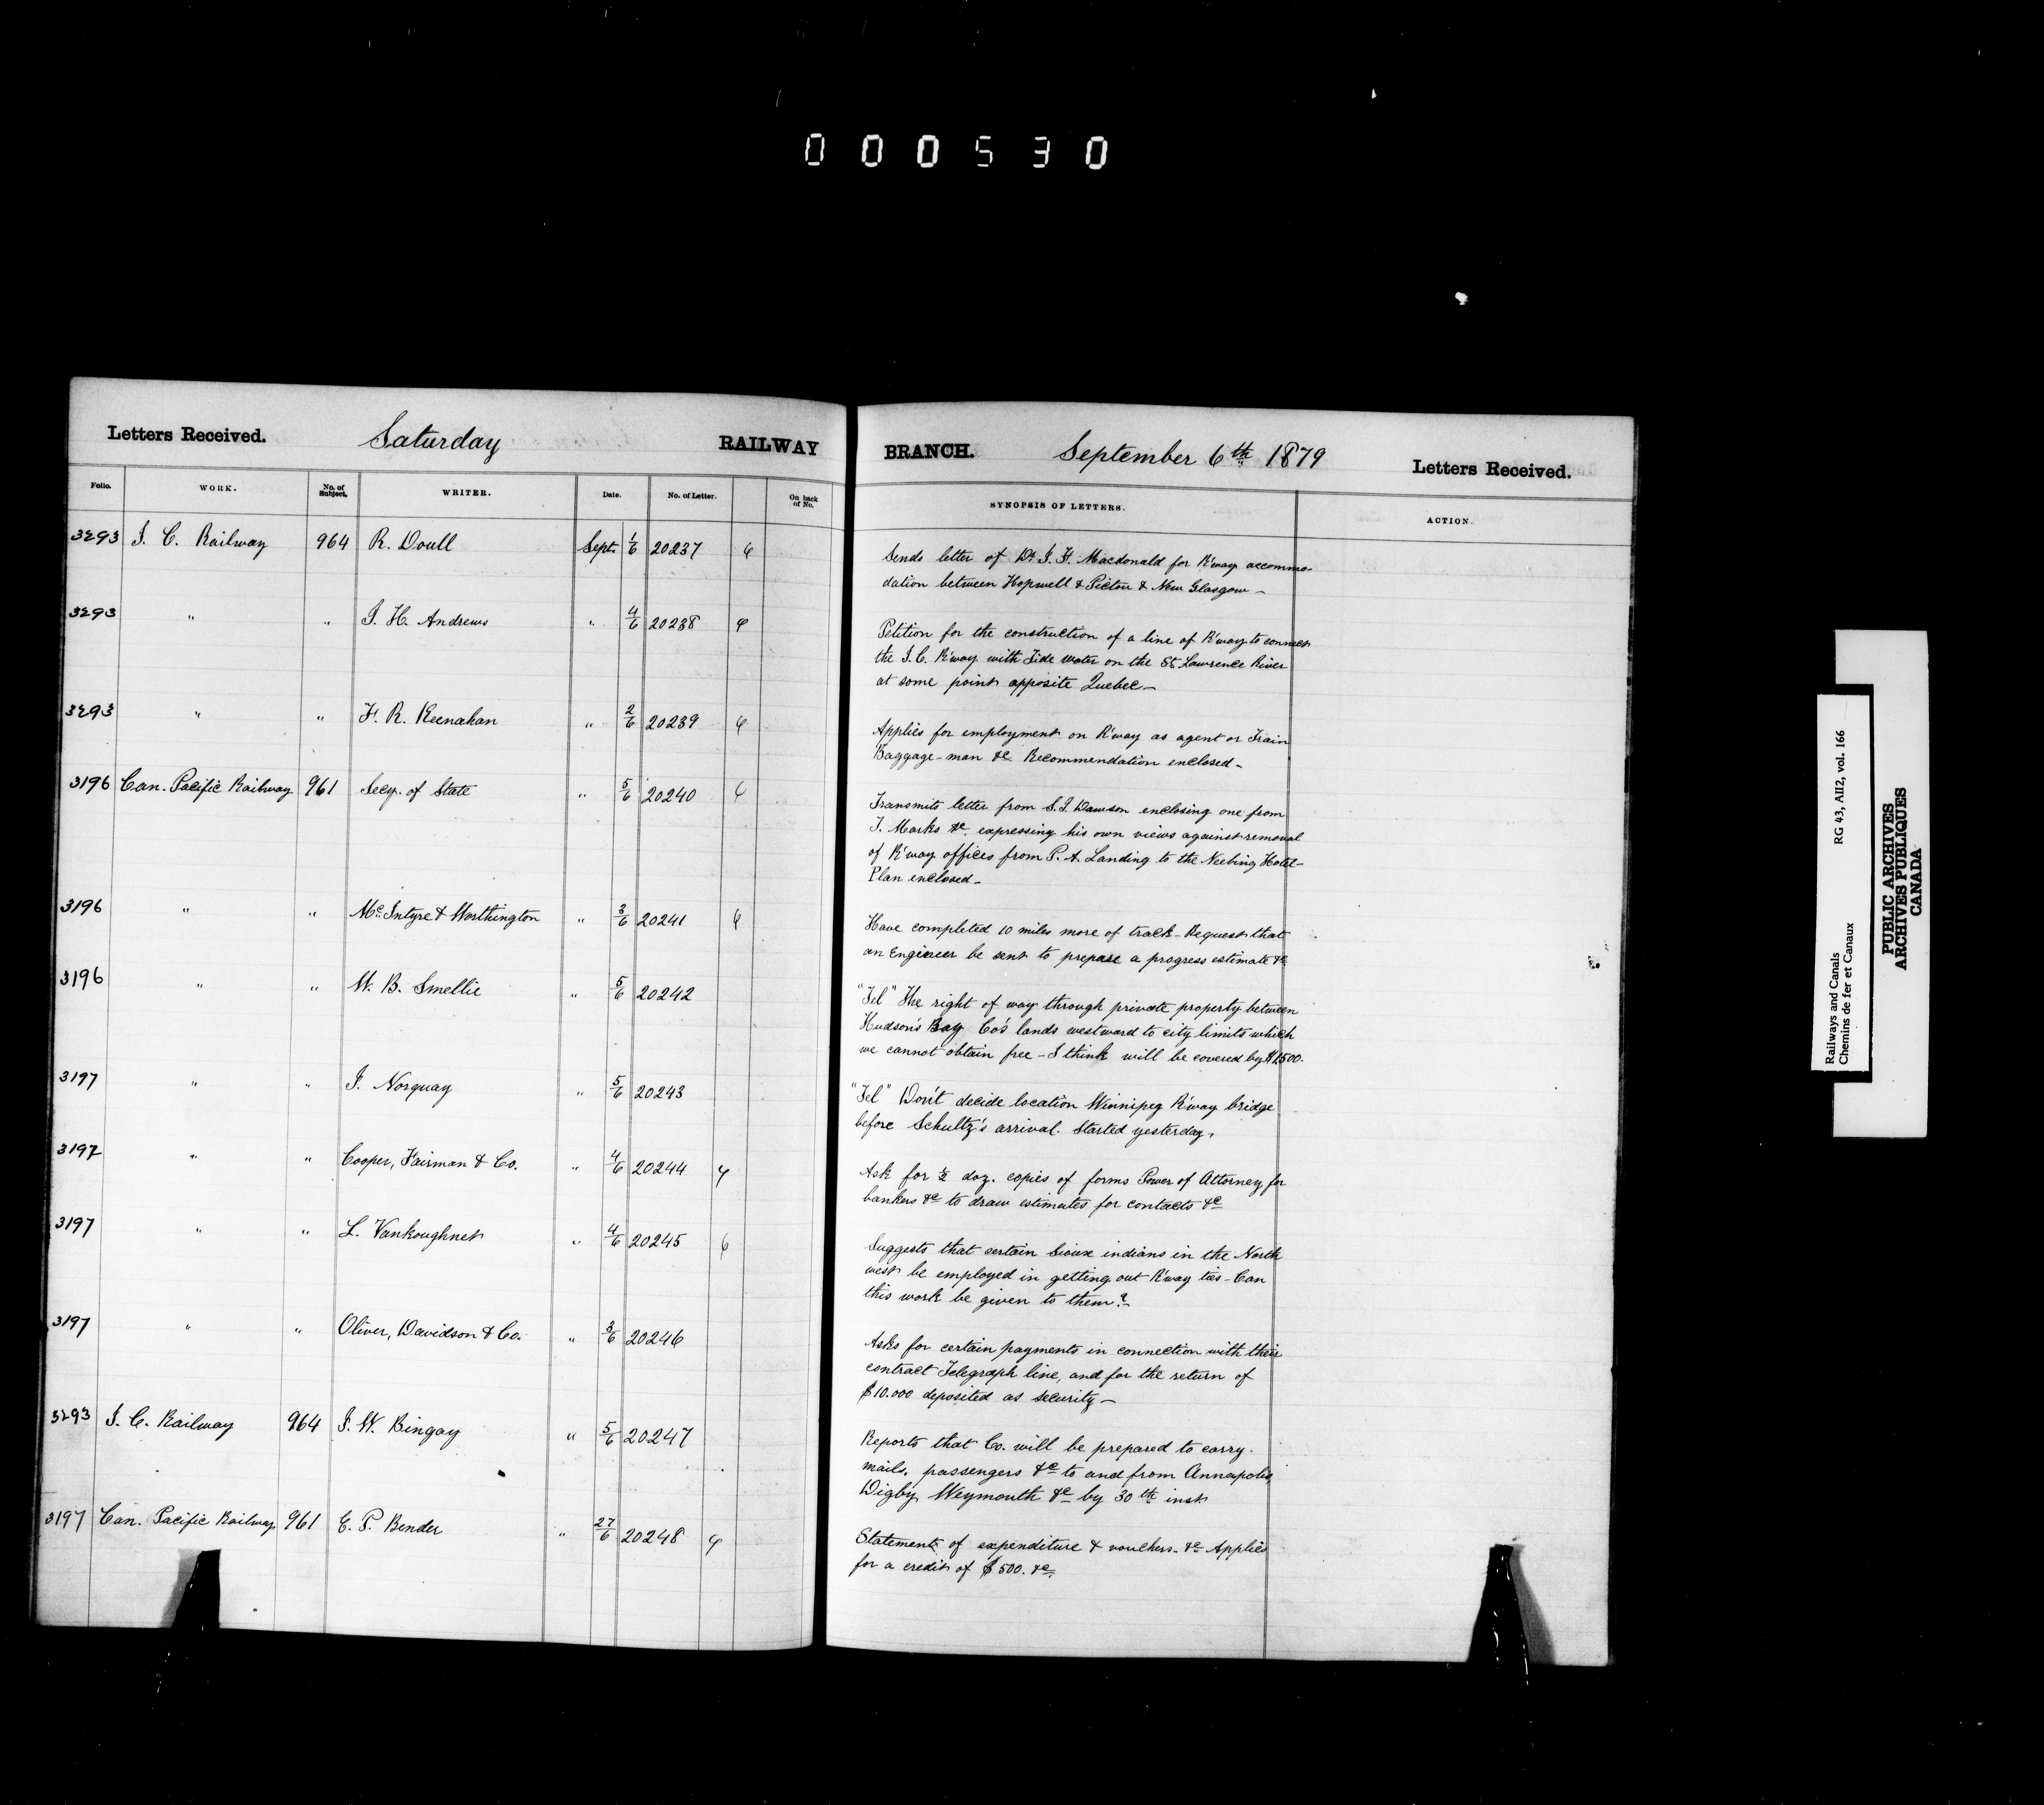 000530
Letters Received. Saturday RAILWAY
Folio. WORK. No. of Subject. WRITER. Date. No. of Letter. On back of No.
3293 I. C. Railway 964 R. Doull Sept. 1/6 20237
3293 " " I. H. Andrews " 4/6 20238
3293 " " F. R. Keenahan " 2/6 20239
3196 Can. Pacific Railway 961 Secy. of State " 5/6 20240
3196 " " McIntyre & Worthington " 3/6 20241
3196 " " W. B. Smellie " 5/6 20242
3197 " " J. Norquay " 5/6 20243
3197 " " Cooper, Fairman & Co. " 4/6 20244
3197 " " L. Vankoughnet " 4/6 20245
3197 " " Oliver, Davidson & Co. " 3/6 20246
3293 I. C. Railway 964 J. W. Bingay " 5/6 20247
3197 Can. Pacific Railway 961 E. P. Bender " 27/6 20248
BRANCH. September 6th 1879 Letters Received.
SYNOPSIS OF LETTERS. ACTION.
Sends letter of Dr. J. F. Macdonald for R'way accommo-
dation between Hopwell & Pictou & New Glasgow –
Petition for the construction of a line of R'way to connect
the I. C. R'way with Tide water on the St. Lawrence River
at some point opposite Quebec –
Applies for employment on R'way as agent or Train
Baggage-man &c. Recommendation enclosed –
Transmits letter from S. J. Dawson enclosing one from
T. Marks &c. expressing his own views against removal
of R'way offices from P. A. Landing to the Neebing Hotel –
Plan enclosed –
Have completed 10 miles more of track – Request that
an Engineer be sent to prepare a progress estimate &c.
"Tel" The right of way through private property between
Hudson's Bay Co's lands westward to city limits which
we cannot obtain free – I think will be covered by $1500.
"Tel" Don't decide location Winnipeg R'way bridge
before Schultz's arrival. Started yesterday.
Ask for ½ doz. copies of forms Power of Attorney for
bankers &c to draw estimates for contacts &c
Suggests that certain Sioux indians in the North
west be employed in getting out R'way ties – Can
this work be given to them? –
Asks for certain payments in connection with their
contract Telegraph line, and for the return of
$10.000 deposited as security –
Reports that Co. will be prepared to carry
mails, passengers &c to and from Annapolis,
Digby, Weymouth &c by 30th inst
Statements of expenditure & vouchers &c Applies
for a credit of $500. &c.
Railways and Canals RG 43, AII2, vol. 166
Chemins de fer et Canaux
PUBLIC ARCHIVES
ARCHIVES PUBLIQUES
CANADA